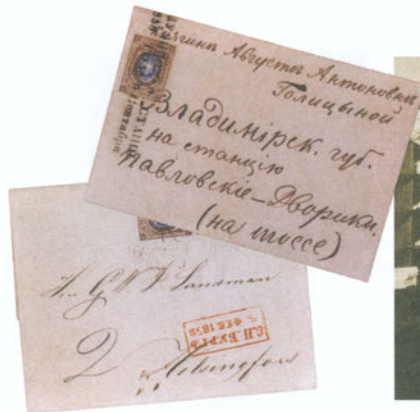 Княгинѣ Августѣ Антоновнѣ
Голицыной
Владимірск. губ.
на станцію
Павловскіе-Дворики.
(на шоссе)
G
Landman
2
Helsingfors
С.П.БУРГЪ
ФЕВ 1858